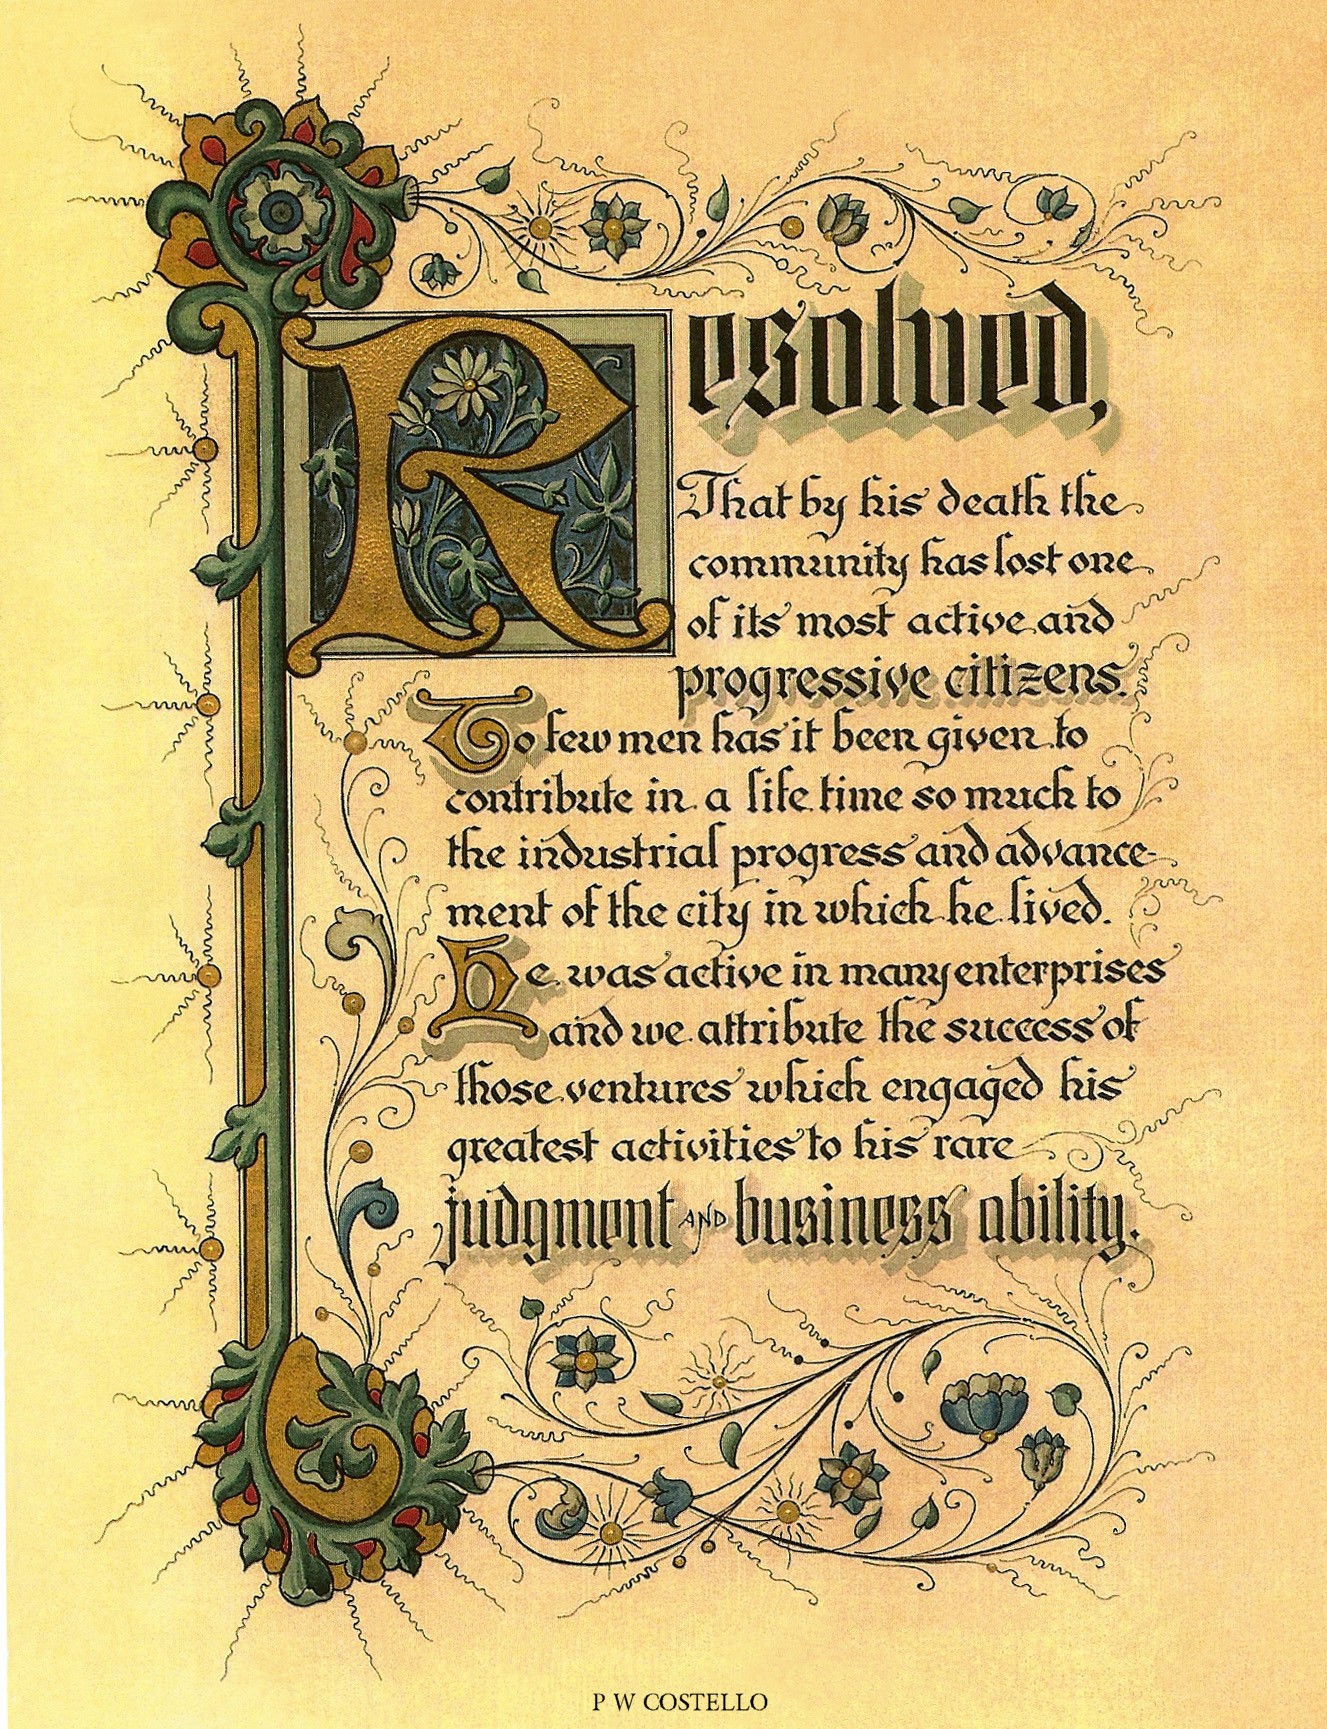 Resolved,
That by his death the
community has lost one
of its most active and
progressive citizens.
To few men has it been given to
contribute in a life time so much to
the industrial progress and advance-
ment of the city in which he lived.
He was active in many enterprises
and we attribute the success of
those ventures which engaged his
greatest activities to his rare
judgment AND business ability.
P W COSTELLO